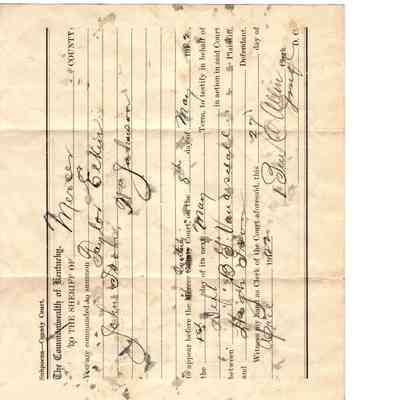 Subpoena—County Court.
The Commonwealth of Kentucky.
TO THE SHERIFF OF Mercer COUNTY:
You are commanded to summon Taylor
John Wm Johnson
to appear before the Mercer Court, on the 8th day of May 1902
the 1st day of its next May Term, to testify in behalf of
Deft in action in said Court
between B. F. Vanarsdall Plaintiff,
and Hugh Defendant.
Witness my hand as Clerk of the Court aforesaid, this 27 day of
1902
Ben C. Allin Clerk
D. C.